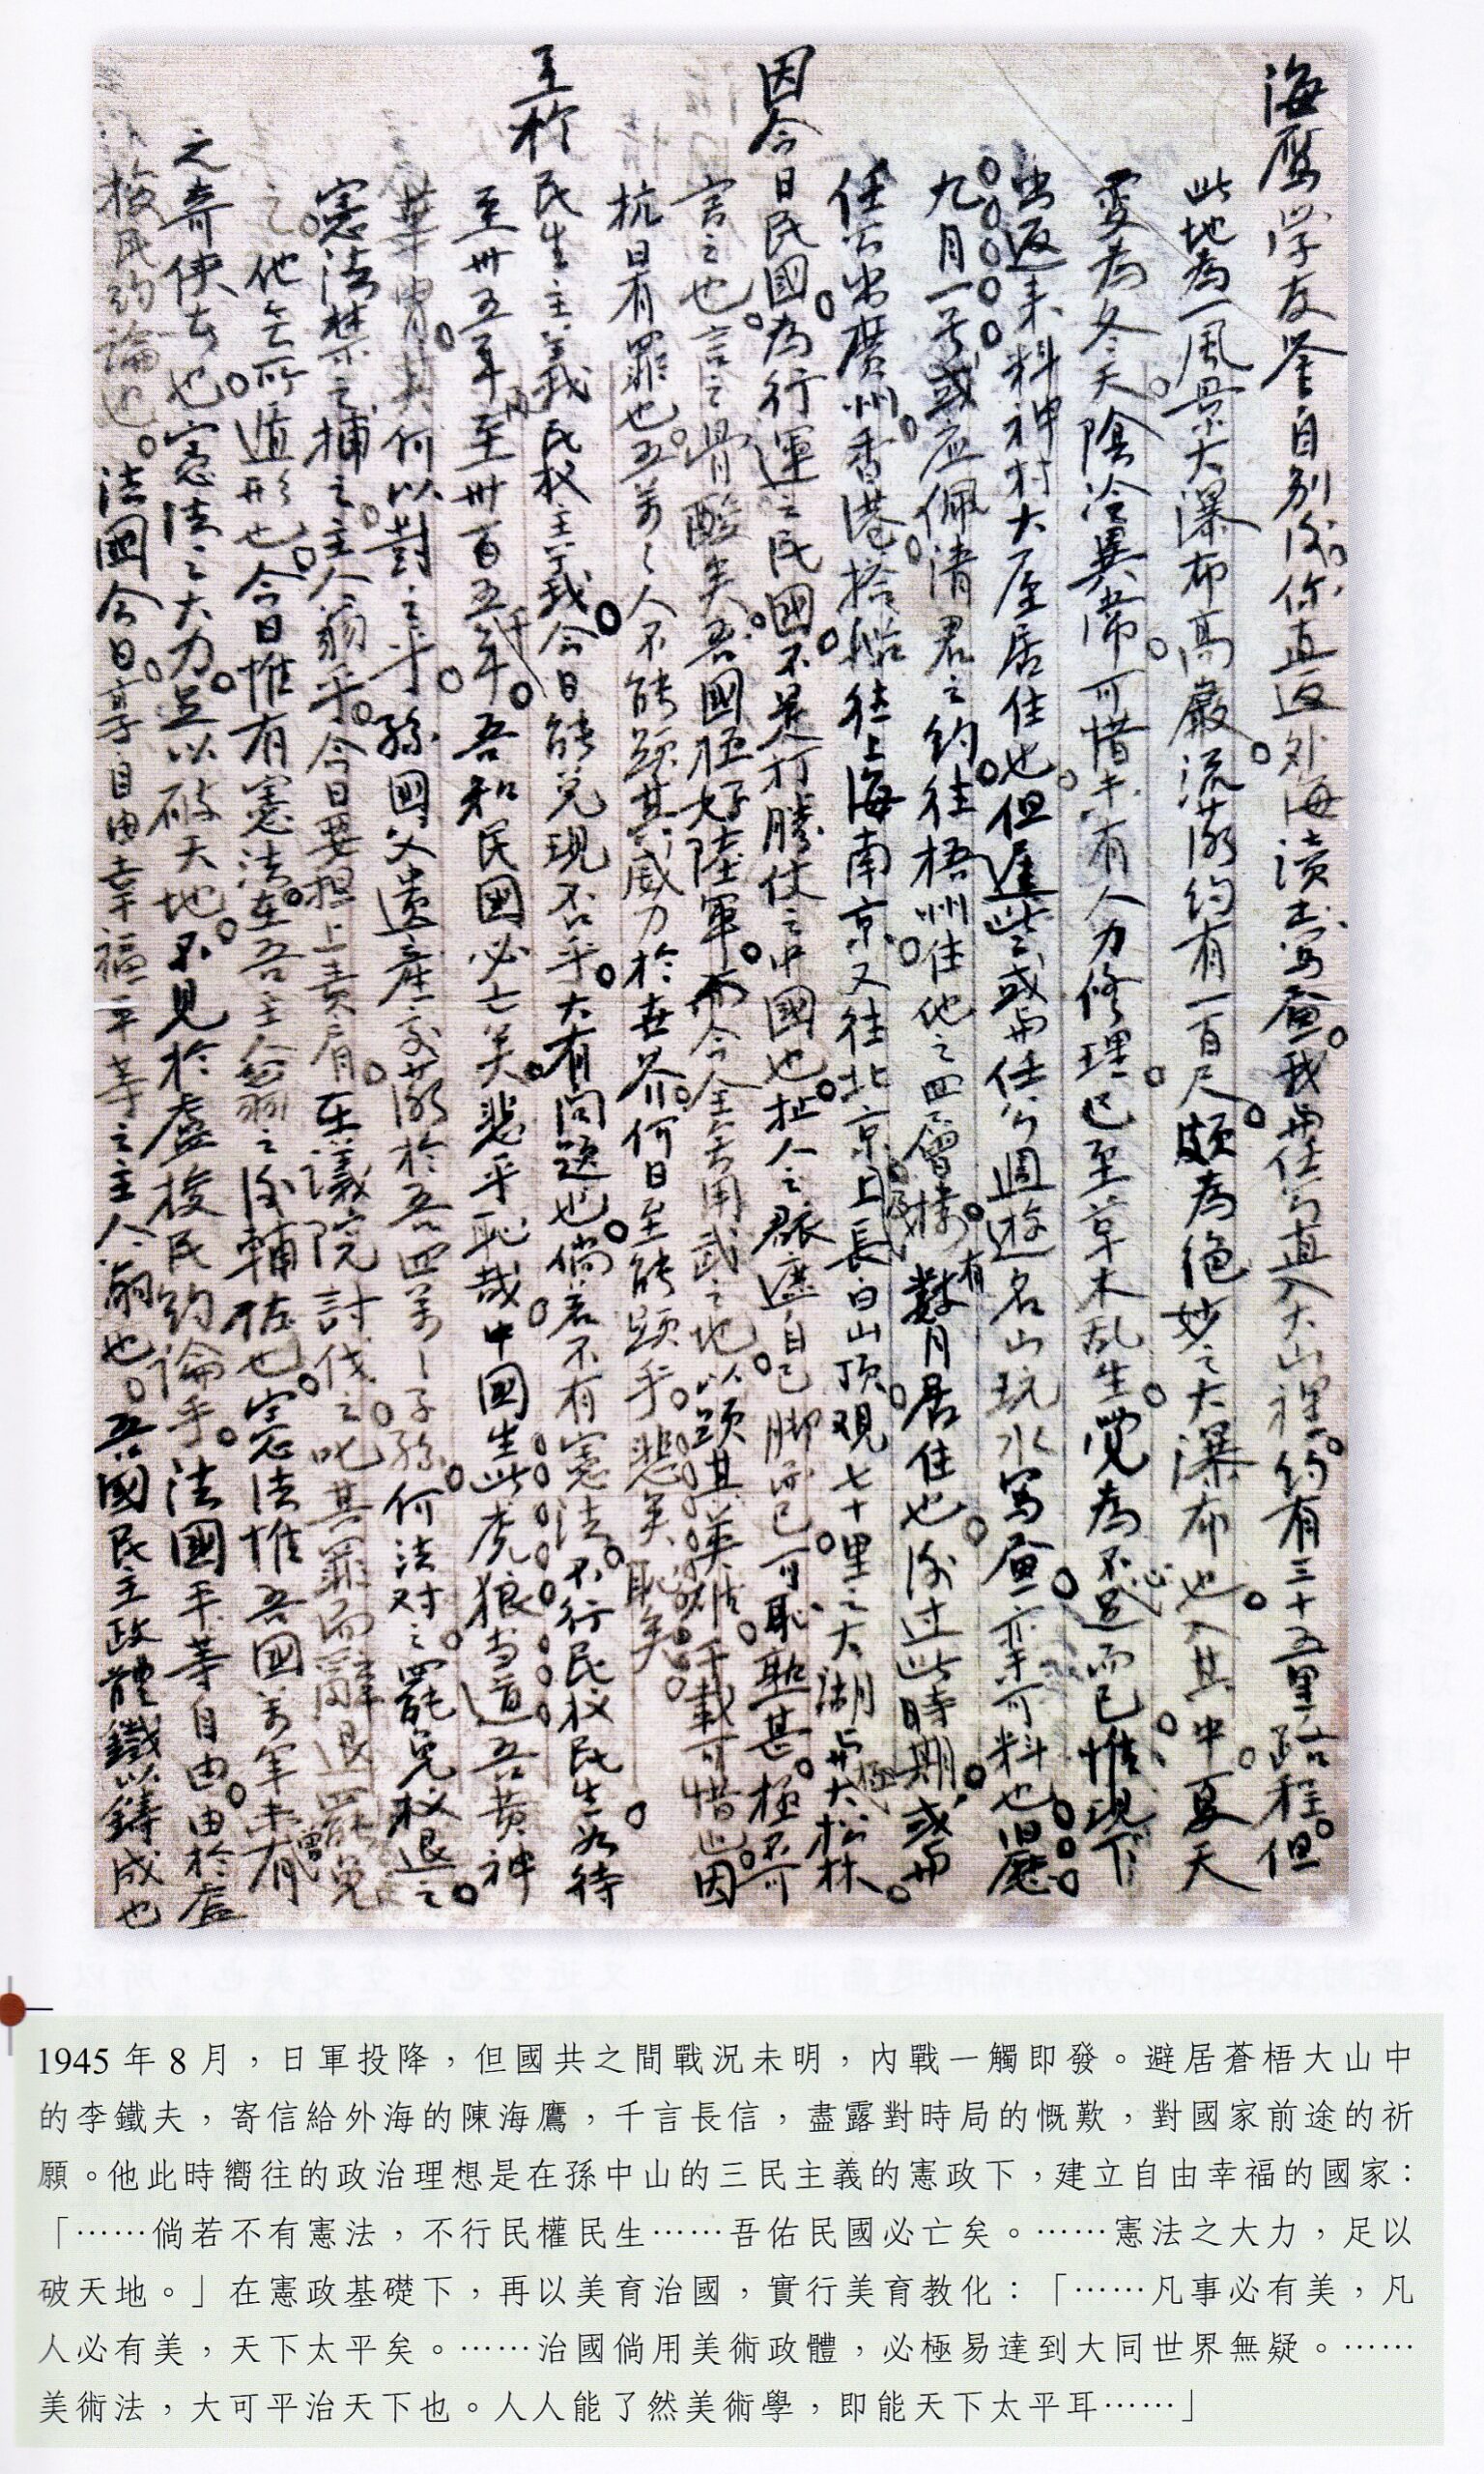 海鹰学友鉴自别後你直返外海讀书寫画我與任公直入大山裡約有三十五里路程但
此地為一風景大瀑布高巖流落約有一百尺頗為绝妙之大瀑布也入其中夏天
变為冬天陰冷異常可惜未有人力修理已至草木乱生觉為不足心而已惟現下
出返来料神村大屋居住也但遲些或與任公週遊名山玩水寫画一業可料也旧歷
九月一号或应佩清君之約往梧州住他之四層楼有數月居住也後过此時期或與
任公出廣州香港搭船往上海南京又往北京上長白山顶观七十里之大湖與大松林
因今日民國為行運之民國不是打勝仗之中國也扯人之衫遮自己脚而已可恥甚極不可
言之也言之骨酸矣吾國極好陸軍而今全無用武之地以顕其英雄千載可惜也因
抗日有罪也五万万人不能顕其威力於世界何日至能顕乎悲矣恥矣
至於民生主義民权主義今日能兑現否乎大有問題也倘若不有憲法不行民权民生必待
至卅五年至卅百五千年吾和民國必亡矣悲乎恥哉中國生此虎狼当道吾黄神
華胄其何以對之乎孫國父遺産一交落於吾四万万子孫何法対之罷免权退之
憲法禁之捕之主人翁乎今日要担上責肩在議院討伐之叱其罪而辭退罷免
之他無所遁形也今日惟有憲法在吾主人翁之後輔佐也憲法惟吾國万年未曾有
之奇侠在也憲法之大力足以破天地不見於盧梭民約論乎法國平等自由由於盧
梭民約論也法國今日享自由幸福平等之主人翁也吾國民主政體鐵以鑄成也
1945 年 8 月，日軍投降，但國共之間戰況未明，內戰一觸即發。避居蒼梧大山中
的李鐵夫，寄信給外海的陳海鷹，千言長信，盡露對時局的慨歎，對國家前途的祈
願。他此時嚮往的政治理想是在孫中山的三民主義的憲政下，建立自由幸福的國家：
「⋯⋯倘若不有憲法，不行民權民生⋯⋯吾佑民國必亡矣。⋯⋯憲法之大力，足以
破天地。」在憲政基礎下，再以美育治國，實行美育教化：「⋯⋯凡事必有美，凡
人必有美，天下太平矣。⋯⋯治國倘用美術政體，必極易達到大同世界無疑。⋯⋯
美術法，大可平治天下也。人人能了然美術學，即能天下太平耳⋯⋯」